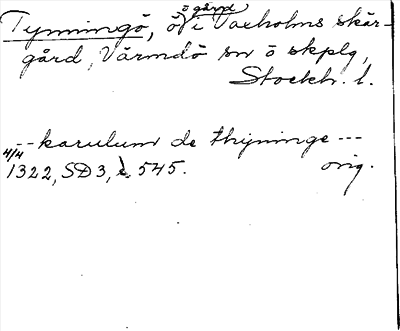 Tynningö, ö o gård i Vaxholms skär-
gård, Värmdö sn o skplg,
Stockh. l.
--- karulum de thyninge ---
4/4 1322, SD 3, s. 545. orig.